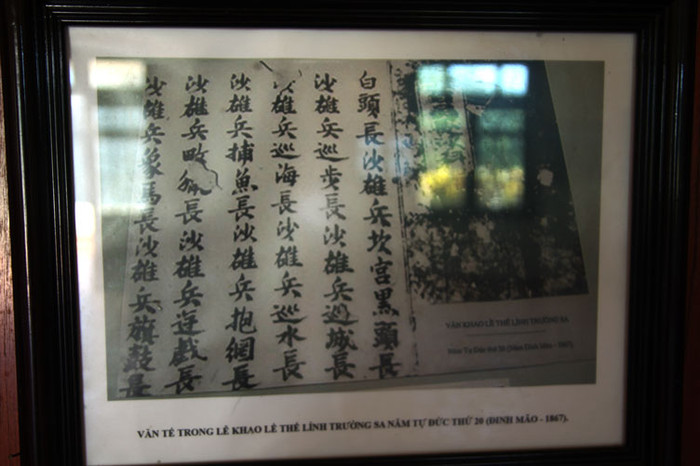 白頭長沙雄兵坎宮黑頭長
沙雄兵巡步長沙雄兵巡城長
沙雄兵巡海長沙雄兵巡水長
沙雄兵捕魚長沙雄兵抱網長
沙雄兵畋長沙雄兵逰戲長
沙雄兵象馬長沙雄兵旗鼓長
VĂN KHAO LỀ THẾ LÍNH TRƯỜNG SA
Tự Đức thứ 20 (Năm Đinh Mão - 1867)
VĂN TẾ TRONG LỄ KHAO LỀ THẾ LÍNH TRƯỜNG SA NĂM TỰ ĐỨC THỨ 20 (ĐINH MÃO - 1867).